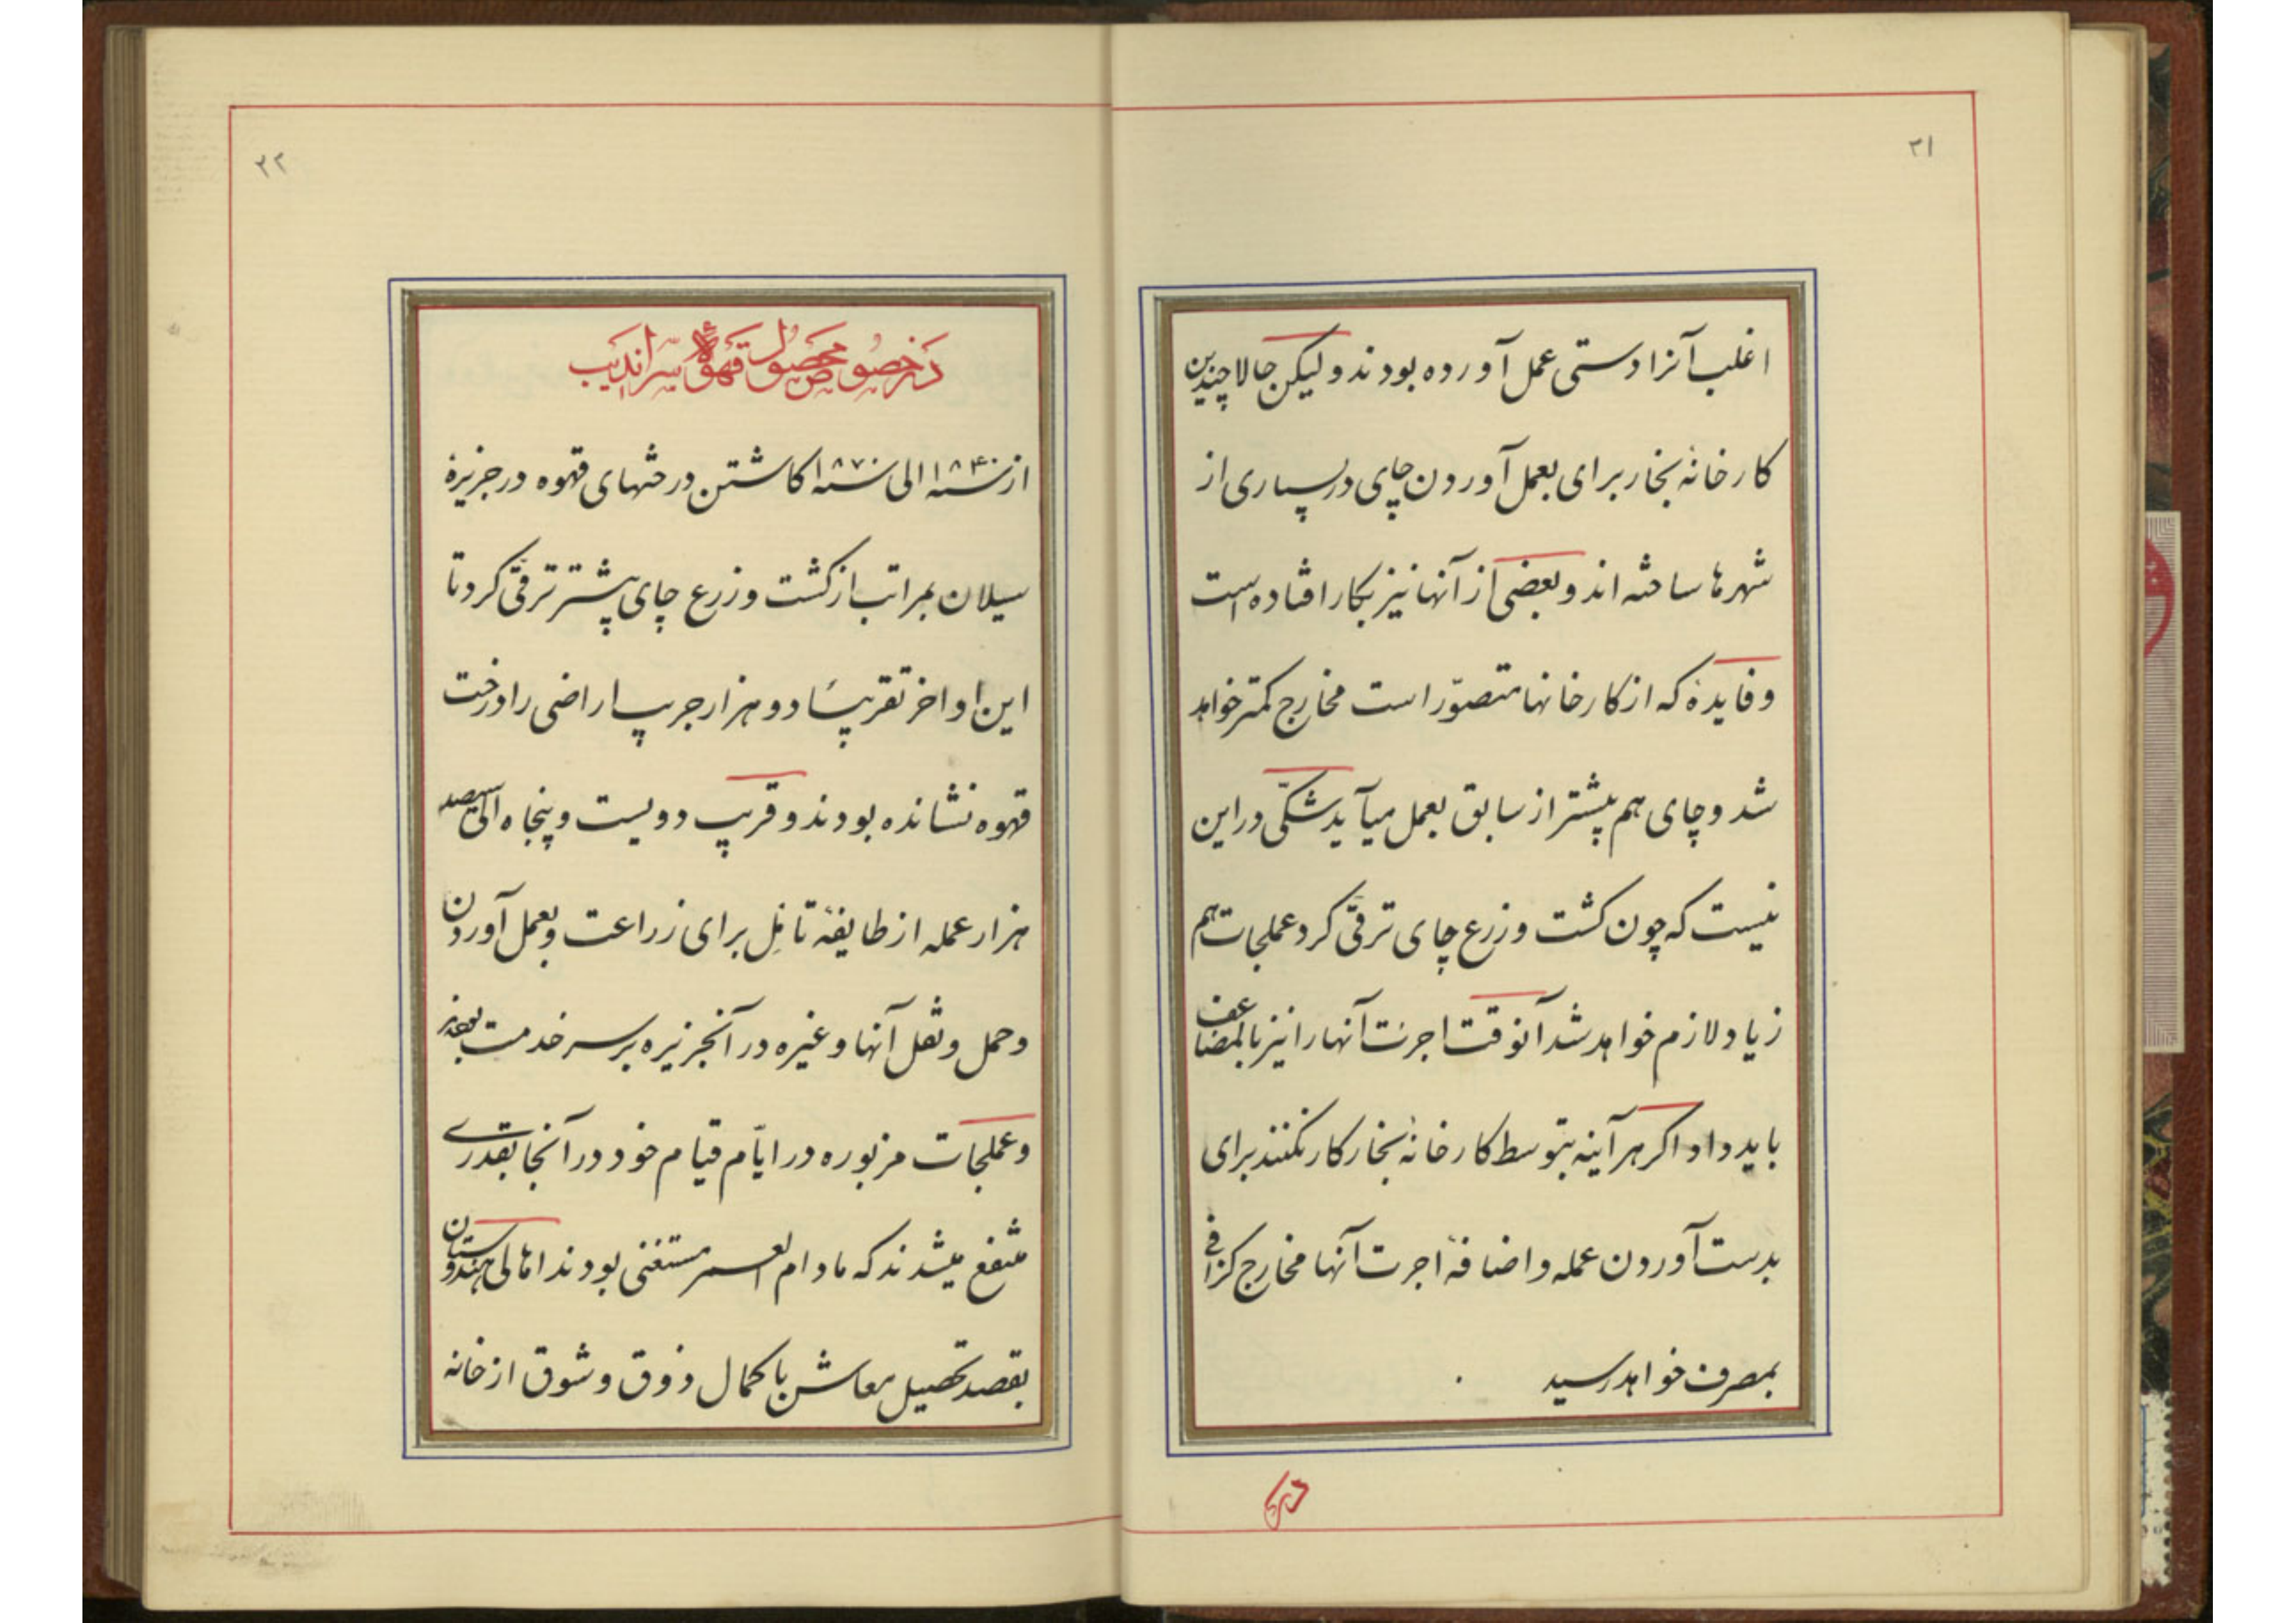 ۳۱
اغلب آنرا دستی عمل آورده بودند ولیکن حالا چندین
کارخانهٔ بخار برای بعمل آوردن چای در بسیاری از
شهرها ساخته اند و بعضی از آنها نیز بکار افتاده است
و فایدهٔ که از کارخانها متصوّر است مخارج کمتر خواهد
شد و چای هم بیشتر از سابق بعمل میآید شکّی در این
نیست که چون کشت و زرع چای ترقّی کرد عملجات هم
زیاد لازم خواهد شد آنوقت اجرت آنها را نیز بالمضاعف
باید داد اکر هر آینه بتوسط کارخانهٔ بخار کار نکنند برای
بدست آوردن عمله و اضافهٔ اجرت آنها مخارج کزافی
بمصرف خواهد رسید
در
۳۲
در خصوص محصول قهوهٔ سراندیب
از سنه ۱۸۴۰ الی سنه ۱۸۷۰ کاشتن درختهای قهوه در جزیرهٔ
سیلان بمراتب از کشت و زرع چای بیشتر ترقّی کرد تا
این اواخر تقریباً دو هزار جریب اراضی را درخت
قهوه نشانده بودند و قریب دویست و پنجاه الی سیصد
هزار عمله از طایفهٔ تامِل برای زراعت و بعمل آوردن
و حمل و نقل آنها و غیره در آنجزیره بر سر خدمت بودند
و عملجات مزبوره در ایّام قیام خود در آنجا بقدری
منتفع میشدند که مادام العمر مستغنی بودند اهالی هندوستان
بقصد تحصیل معاش با کمال ذوق و شوق از خانه